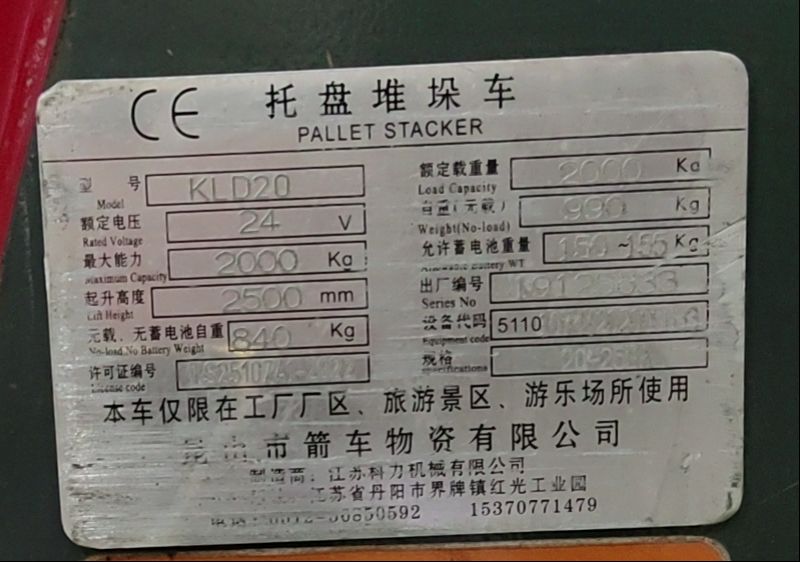 CE 托盘堆垛车
PALLET STACKER
号 KLD20
Model
额定电压 24 V
Rated Voltage
最大能力 2000 Kg
Maximum Capacity
起升高度 2500 mm
Lift Height
无载、无蓄电池自重 840 Kg
No-load,No Battery Weight
许可证编号
License code
额定载重量 2000 Kg
Load Capacity
自重(无载) 990 Kg
Weight(No-load)
允许蓄电池重量 150~155 Kg
Battery WT
出厂编号
Series No
设备代码 5110
Equipment code
规格
Specifications
本车仅限在工厂厂区、旅游景区、游乐场所使用
市箭车物资有限公司
制造商:江苏科力机械有限公司
江苏省丹阳市界牌镇红光工业园
15370771479